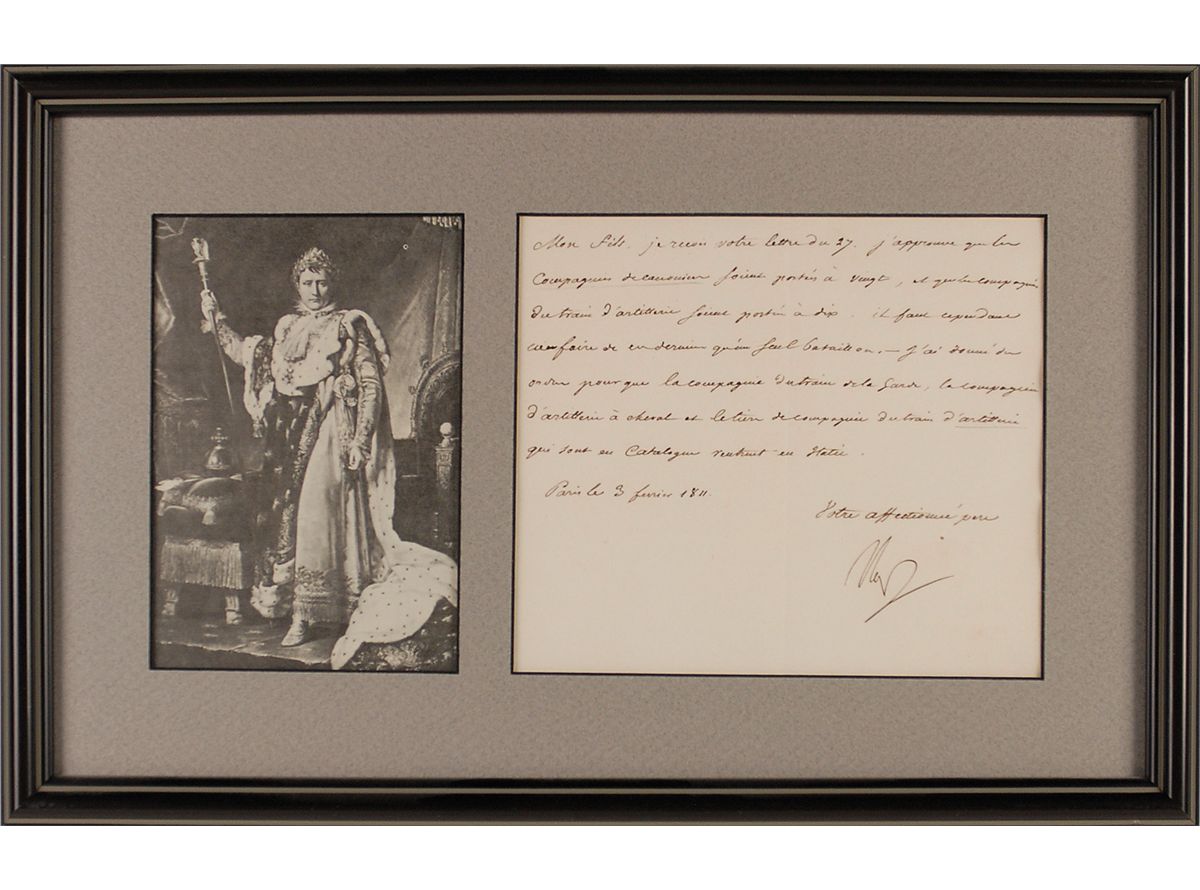 Mon Fils, je recois votre lettre du 27. j'approuve que les
Compagnies de canonier soient portés à vingt, et que les compagnies
du train d'artillerie soient portés à dix. il faut cependant
faire de ces dernier qu'un seul bataillon. — J'ai donné des
ordres pour que la compagnie du train de la Garde, la compagnie
d'artillerie à cheval et le tiers de compagnie du train d'artillerie
qui sont en Catalogne rentrent en Italie.
Paris le 3 fevrier 1811.
Votre affectionné pere
Nap